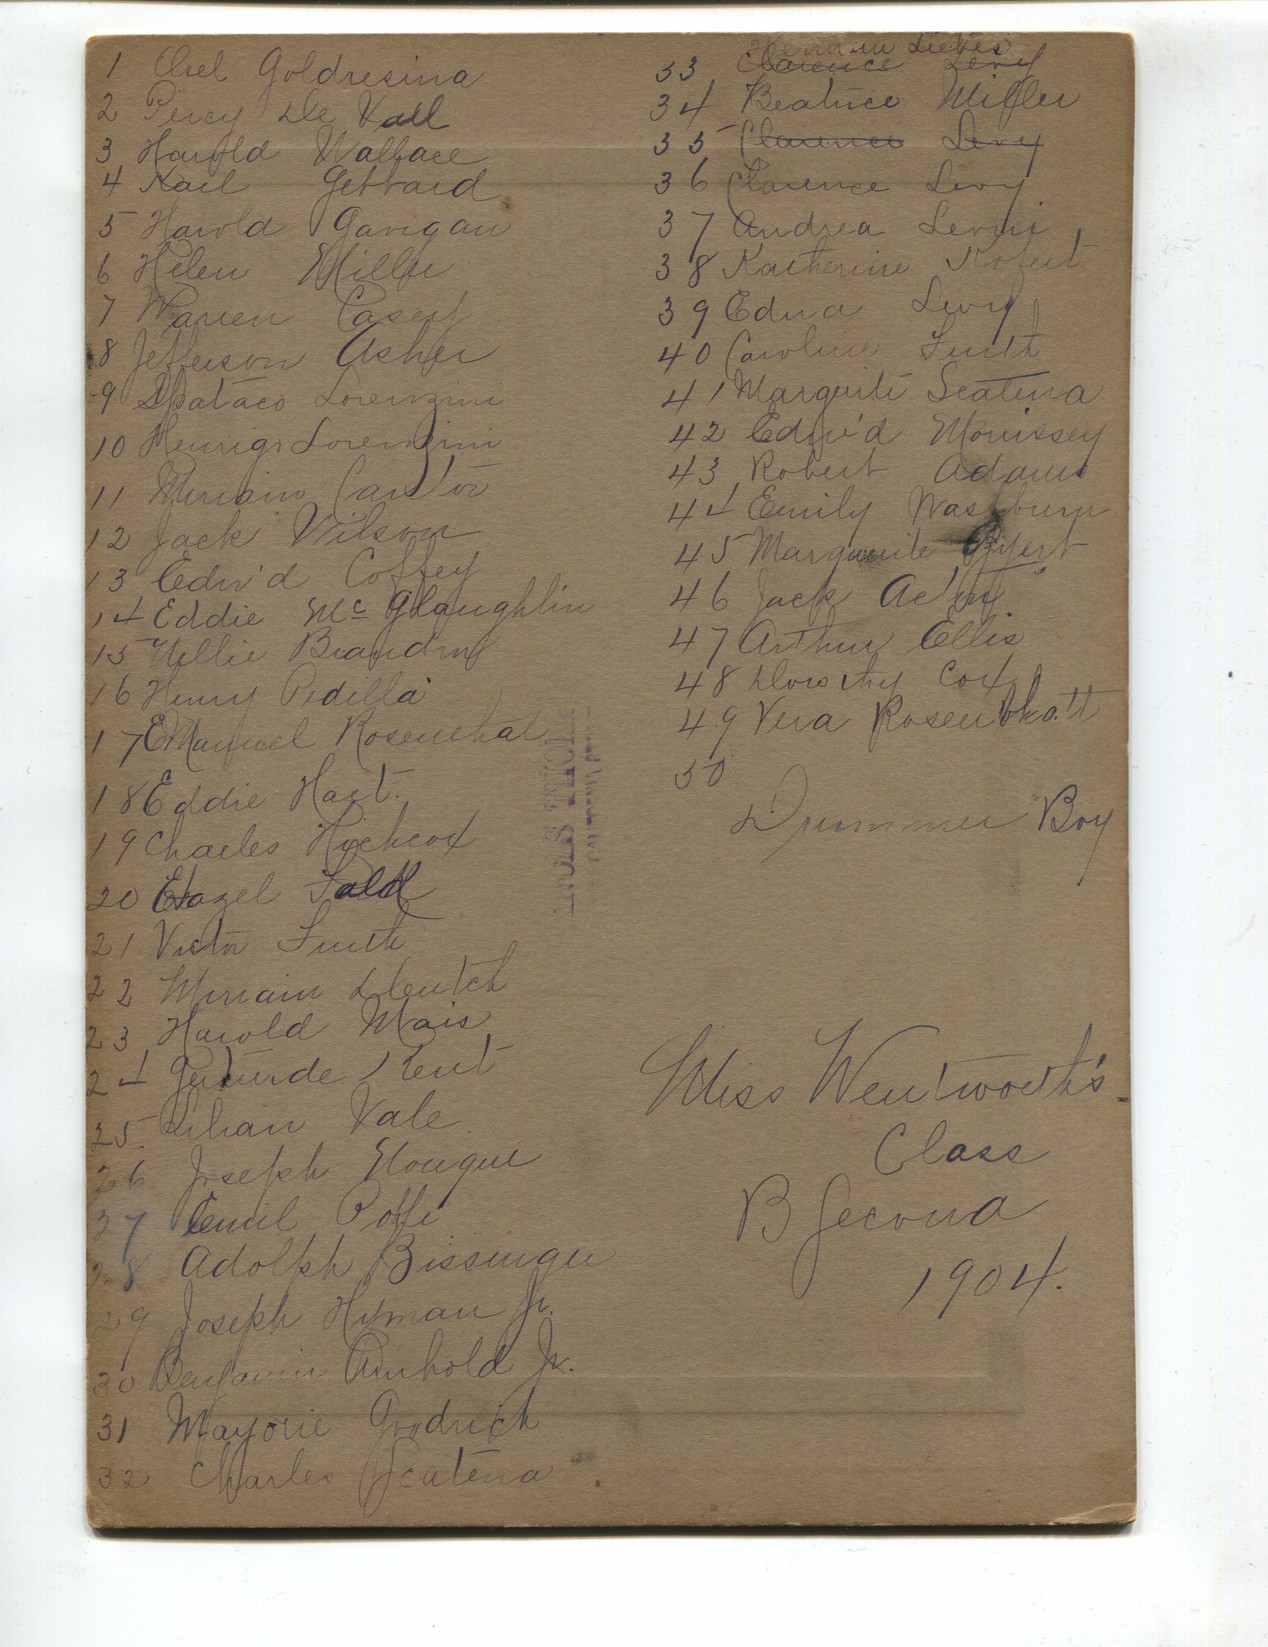 1 Orel Goldresina
2 Percy De Vall
3 Harold Wallace
4 Karl Gebbard
5 Harold Gavigan
6 Helen Miller
7 Warren Casey
8 Jefferson Asher
9 Spataco Lorenzini
10 Lorenzini
11 Miriam Cantor
12 Jack Wilson
13 Edw'd Coffey
14 Eddie Mc Glaughlin
15 Nellie
16 Henry Pedilla
17 Emanuel Rosenthal
18 Eddie Hart.
19 Charles Hickcox
20 Hazel
21 Victor Furth
22 Miriam Deutch
23 Harold Mais
24 Gertrude Kent
25 Lilian Vale
26 Joseph
27 Emil
28 Adolph Bissinger
29 Joseph Hyman Jr.
30 Benjamin Arnhold Jr.
31 Marjorie Goodrich
32 Charles Scatena
Herman Liebes
33 Clarence Levy
34 Beatrice Miller
35 Clarence Levy
36 Clarence Levy
37 Andrea
38 Katherine Robert
39 Edna Levy
40 Caroline Furth
41 Marguite Scatena
42 Edw'd Morrissey
43 Robert Adams
44 Emily Washburn
45 Marguerite
46 Jack
47 Arthur Ellis
48 Dorothy Cox
49 Vera
50
Drummer Boy
Miss Wentworth's
Class
B Second
1904.